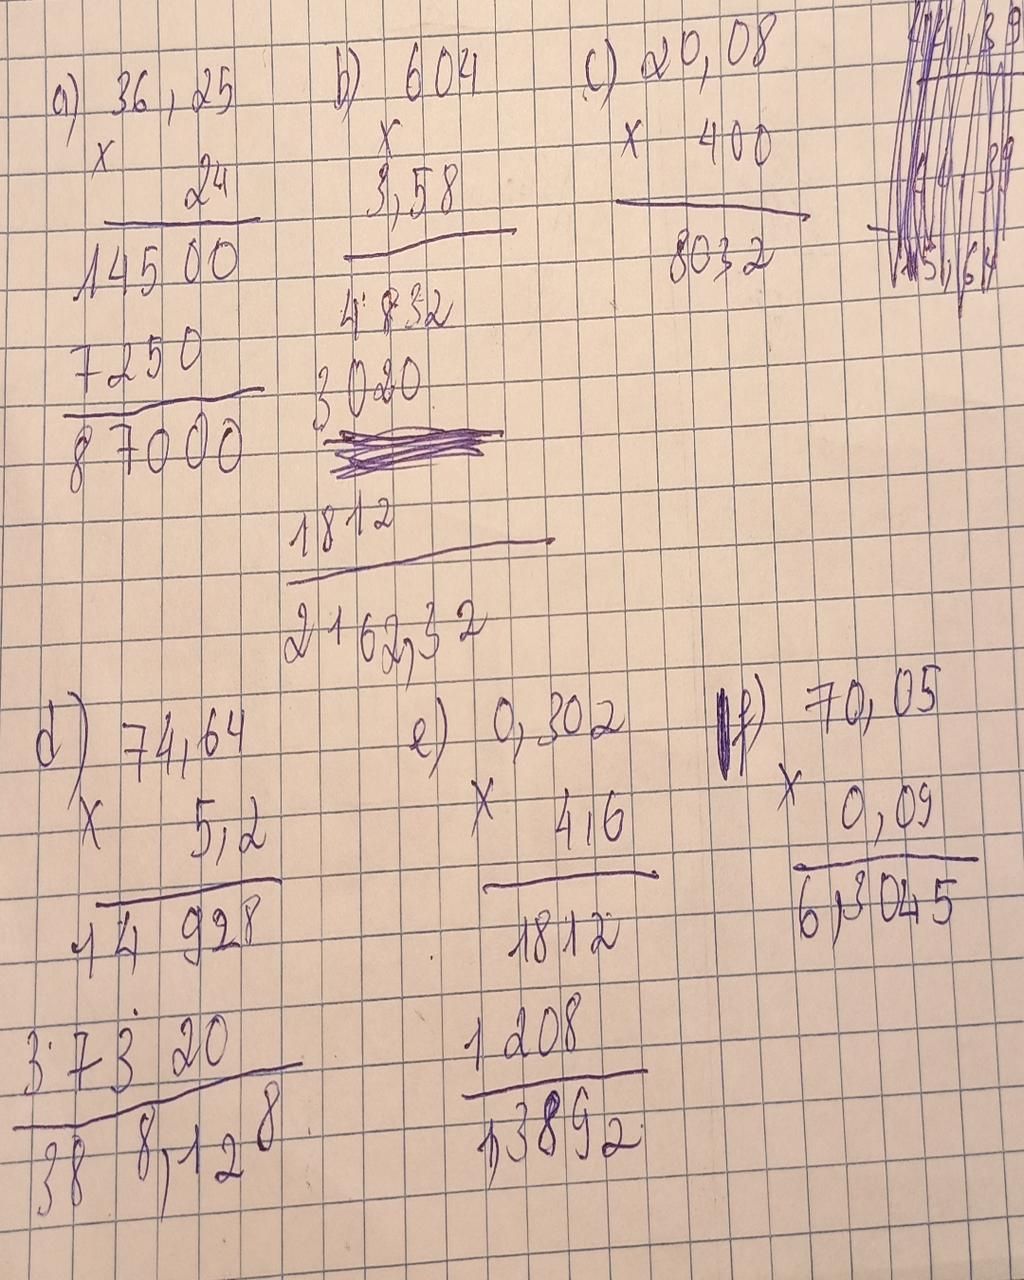 a) 36,25
x 24
14500
7250
87000
b) 604
x
3,58
4832
3020
1812
2162,32
c) 20,08
x 400
8032
d) 74,64
x 5,2
14 928
373 20
38 8,128
e) 0,302
x 4,6
1812
1208
1,3892
f) 70,05
x 0,09
6,3045